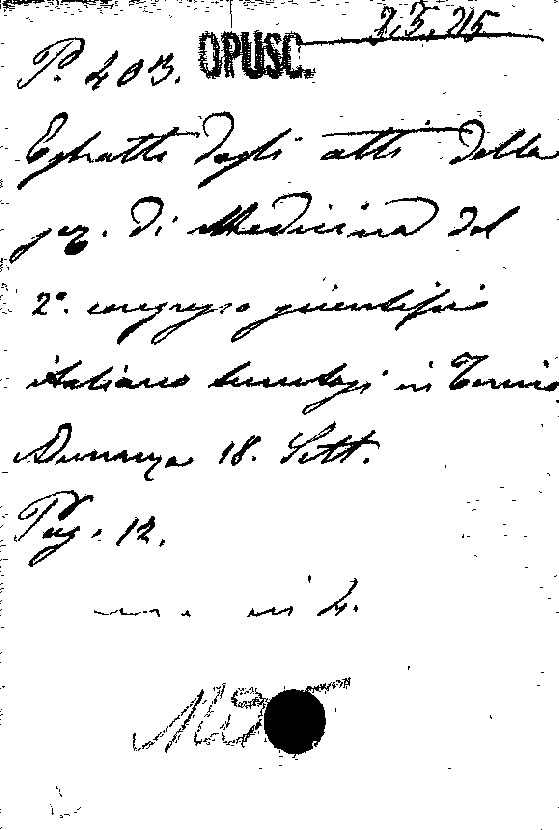 OPUSC. 2.F.25
P. 403.
Estratto dagli atti della
sez. di Medicina del
2°. congresso scientifico
italiano tenutosi in Torino
Adunanza 18. Sett.
Pag. 12.
in 4.